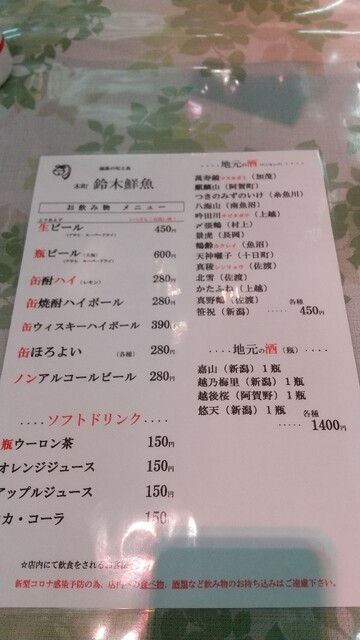 本町 鈴木鮮魚
お飲み物 メニュー
生ビール 450円
(アサヒ スーパードライ)
瓶ビール(大瓶) 600円
(アサヒ スーパードライ)
缶酎ハイ(レモン) 280円
缶焼酎ハイボール 280円
缶ウィスキーハイボール 390円
缶ほろよい (各種) 280円
ノンアルコールビール 280円
‥‥ソフトドリンク‥‥
瓶ウーロン茶 150円
オレンジジュース 150円
アップルジュース 150円
カ・コーラ 150円
☆店内にて飲食をされるお客様
新型コロナ感染予防の為、店内への食べ物、酒類など飲み物のお持ち込みはご遠慮下さい。
‥‥地元の酒
萬寿鏡(加茂)
麒麟山(阿賀町)
つきのみずのいけ(糸魚川)
八海山(南魚沼)
吟田川(上越)
〆張鶴(村上)
景虎(長岡)
鶴齢(魚沼)
天神囃子(十日町)
真稜(佐渡)
北雪(佐渡)
かたふね(上越)
真野鶴(佐渡) 各種
笹祝(新潟) ‥‥‥ 450円
‥‥地元の酒(瓶)‥‥
嘉山(新潟)1瓶
越乃梅里(新潟)1瓶
越後桜(阿賀野)1瓶
悠天(新潟)1瓶 各種
‥‥‥ 1400円